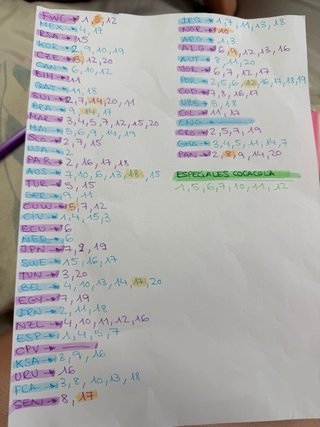 FWC → 1, 2, 12
MEX → 4, 17
RSA → 15
KOR → 2, 9, 10, 19
CZE → 3, 12, 20
CAN → 6, 10, 12
BIH → 11
QAT → 11, 18
SUI → 2, 7, 19, 20, 11
BRA → 9, 14, 17
MAR → 3, 4, 5, 7, 12, 15, 20
HAI → 5, 6, 9, 14, 19
SCO → 2, 7, 15
USA → 2
PAR → 2, 16, 17, 18
AUS → 7, 10, 6, 13, 18, 15
TUR → 5, 15
GER → 9, 11
CUW → 5, 7, 12
CIV → 1, 4, 15, 3
ECU → 6
NED → 6
JPN → 7, 2, 19
SWE → 15, 16, 17
TUN → 3, 20
BEL → 4, 10, 13, 14, 17, 20
EGY → 7, 19
IRN → 2, 11, 18
NZL → 4, 10, 11, 12, 16
ESP → 1, 4, 5, 7
CPV →
KSA → 3, 9, 16
URU → 16
FRA → 3, 8, 10, 13, 18
SEN → 8, 17
IRQ → 1, 7, 11, 13, 18
NOR → 10
ARG → 1, 3
ALG → 6, 9, 12, 13, 16
AUT → 8, 11, 20
JOR → 6, 7, 12, 17
POR → 2, 5, 6, 12, 16, 17, 18, 19
COD → 7, 8, 16, 17
UZB → 5, 18
COL → 11, 17
ENG →
CRO → 2, 5, 7, 19
GHA → 3, 4, 5, 11, 14, 7
PAN → 2, 8, 9, 14, 20
ESPECIALES COCACOLA
1, 5, 6, 7, 10, 11, 12